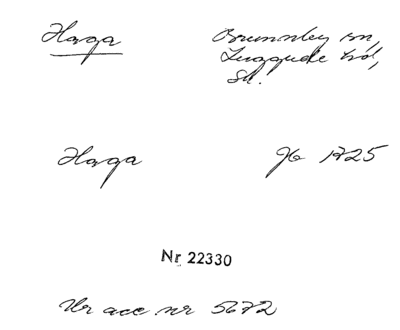 Haga Brunnby sn,
Luggude hd,
Sk.
Haga Jb 1725
Nr 22330
Ur acc nr 5672